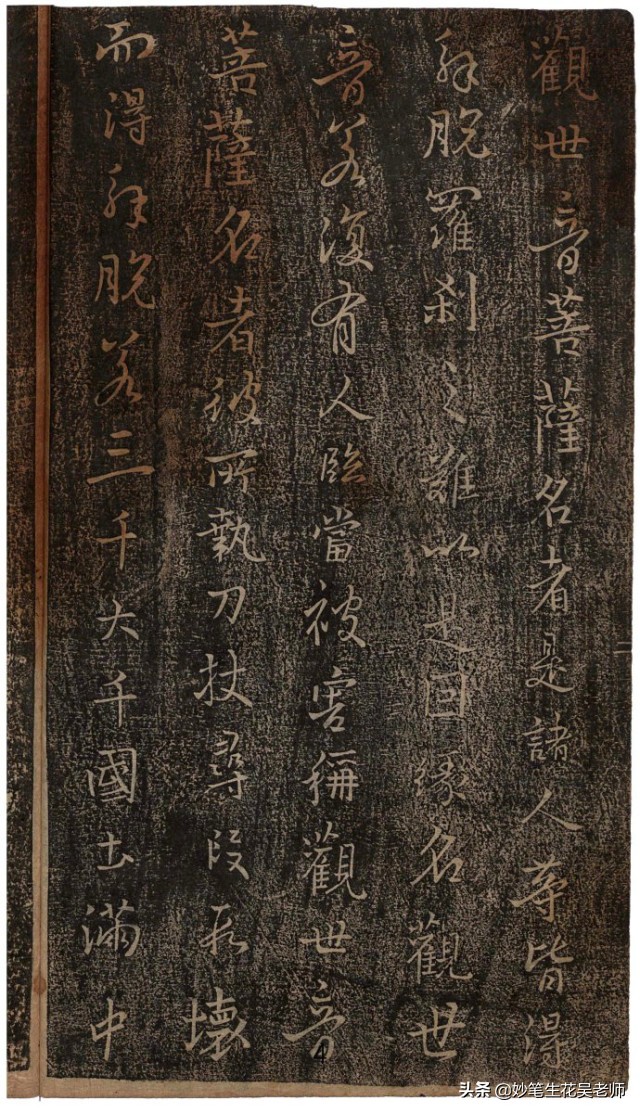 觀世音菩薩名者是諸人等皆得
解脫羅刹之難以是因緣名觀世
音若復有人臨當被害稱觀世音
菩薩名者彼所執刀杖尋段段壞
而得解脫若三千大千國土滿中
头条 @妙笔生花吴老师